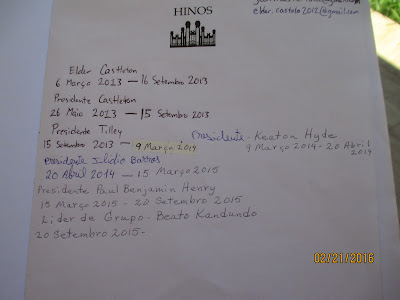 elder.costola2012@gmail.com
HINOS
Elder Castleton
6 Março 2013 — 16 Setembro 2013
Presidente Castleton
26 Maio 2013 — 15 Setembro 2013
Persidente Tilley
15 Setembro 2013 — 9 Março 2014
Presidente - Keaton Hyde
9 Março 2014 - 20 Abril 2014
Presidente Ilídio Barros
20 Abril 2014 — 15 Março 2015
Presidente Paul Benjamin Henry
15 Março 2015 - 20 Setembro 2015
Lider de Grupo - Beato Kandundo
20 Setembro 2015-
02/21/2016